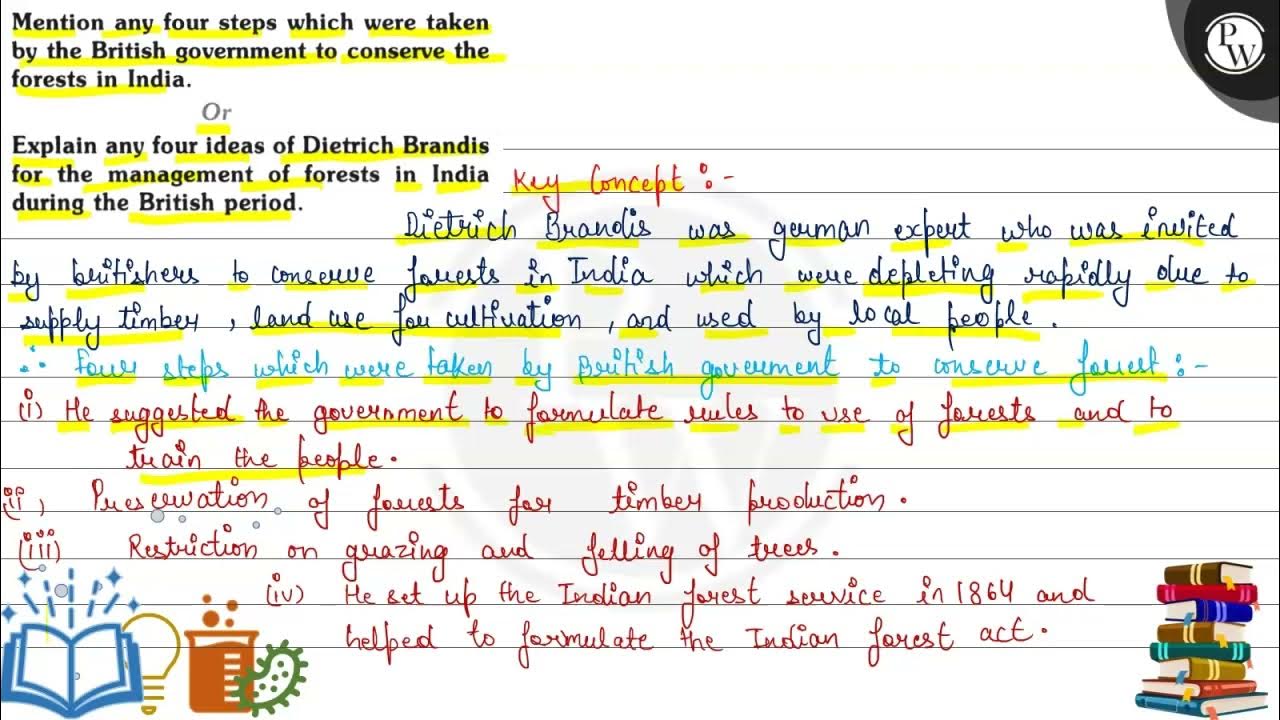 Mention any four steps which were taken
by the British government to conserve the
forests in India.
Or
Explain any four ideas of Dietrich Brandis
for the management of forests in India
during the British period.
PW
Key Concept :-
Dietrich Brandis was german expert who was invited
by britishers to conserve forests in India which were depleting rapidly due to
supply timber , land use for cultivation , and used by local people .
∴ Four steps which were taken by British goverment to conserve forest :-
(i) He suggested the government to formulate rules to use of forests and to
train the people .
(ii) Preservation of forests for timber production .
(iii) Restriction on grazing and felling of trees .
(iv) He set up the Indian forest service in 1864 and
helped to formulate the Indian forest act .